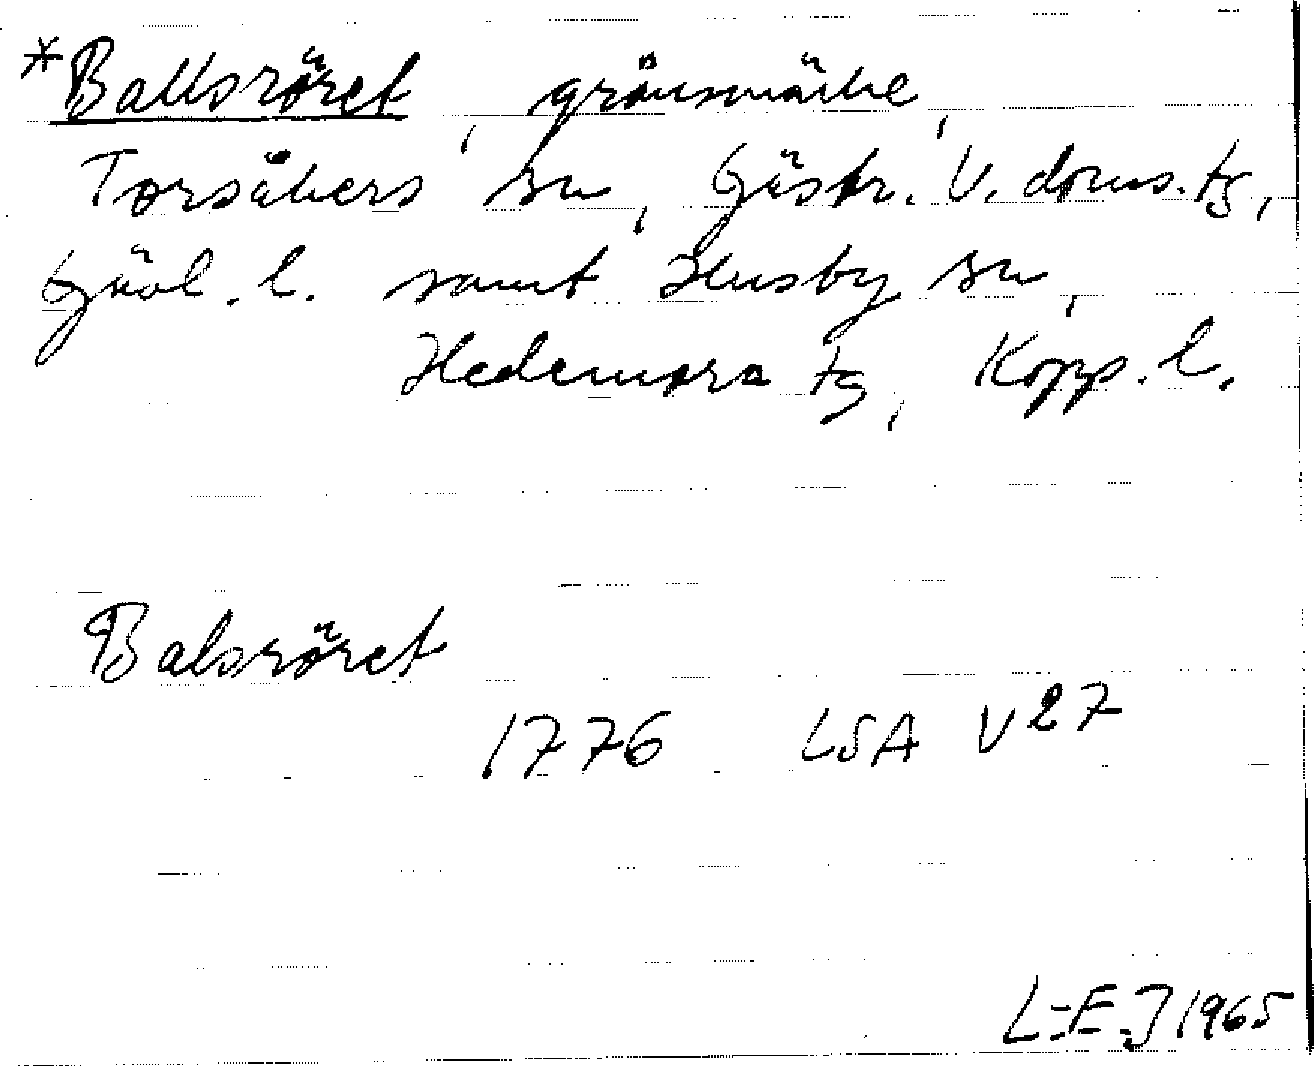 *Ballsröret, gränsmärke,
Torsåkers sn, Gästr. V. doms. tg,
Gävl. l. samt Husby sn,
Hedemora tg, Kopp. l.
Balsröret
1776 LSA V27
L-E.J 1965